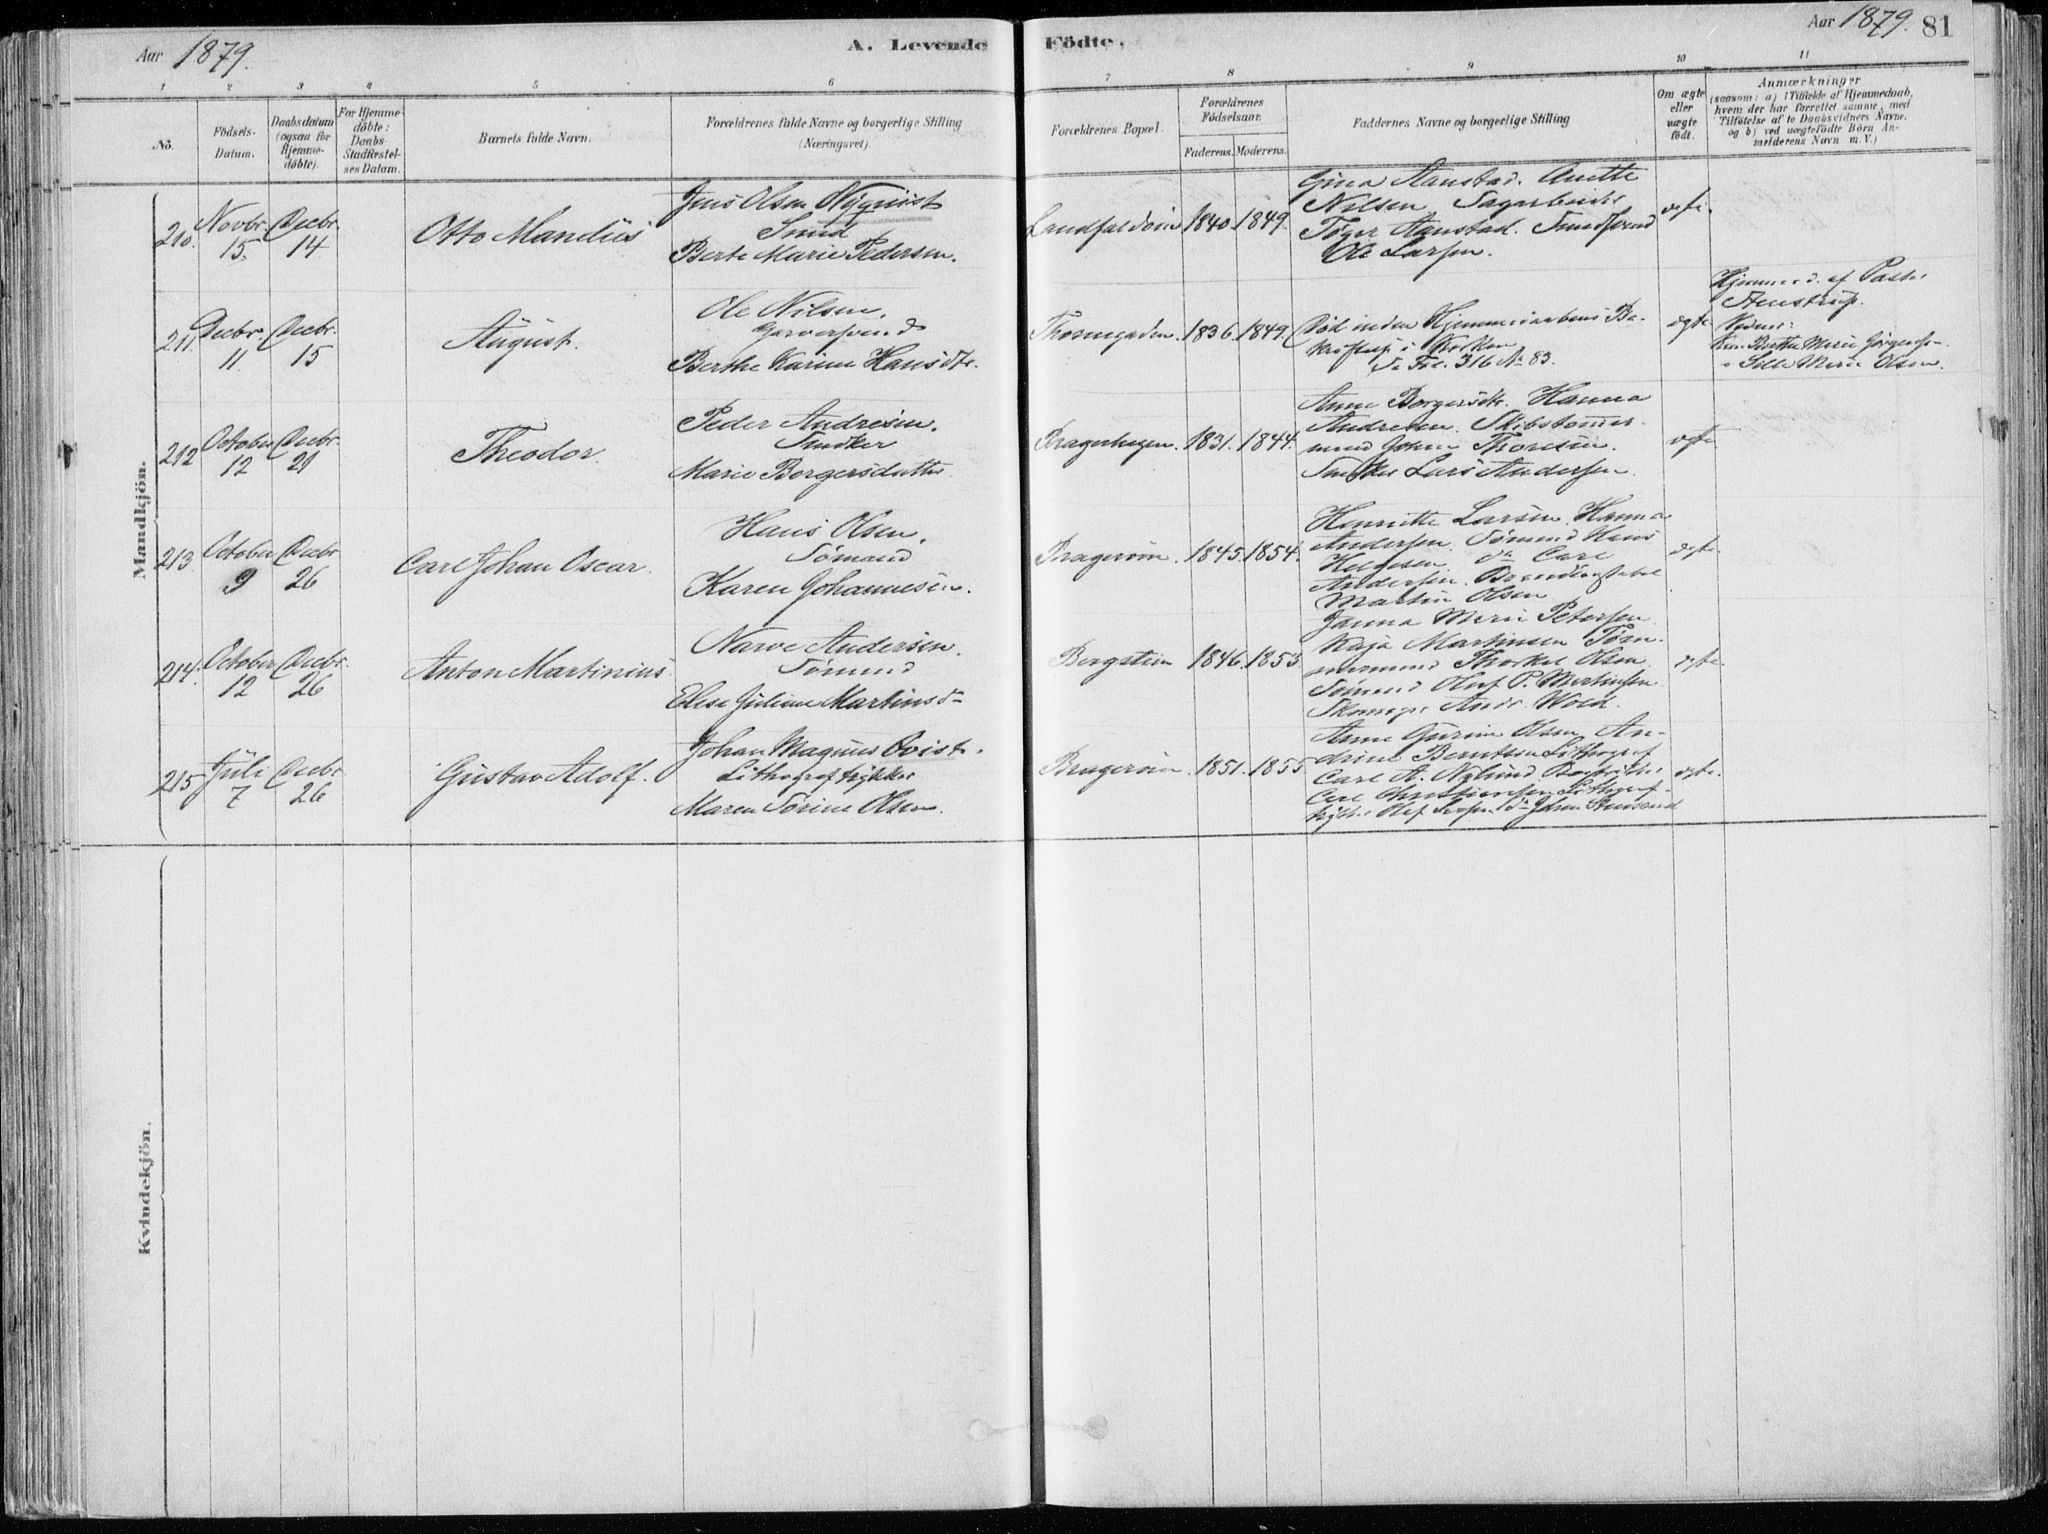 Aar 1879.
A. Levende Födte.
Aar 1879. 81
1 2 3 4 5 6 7 8 9 10 11
No.
Födsels-Datum.
Daabsdatum (ogsaa for Hjemmedöbte).
For Hjemmedöbte: Daabs-Stadfæstelses Datum.
Barnets fulde Navn.
Forældrenes fulde Navne og borgerlige Stilling (Næringsvei).
Forældrenes Bopæl.
Forældrenes Födselsaar.
Faderens. Moderens.
Faddernes Navne og borgerlige Stilling
Om ægte eller uægte födt.
Anmærkninger
(saasom: a) i Tilfælde af Hjemmedaab,
hvem der har forrettet samme, med
Tilföielse af to Daabsvidners Navne.
og b) ved uægtefödte Börn An-
melderens Navn m. V.)
Mandkjön.
210. Novbr. 15. Decbr. 14
Otto Mandius
Jens Olsen Nyquist
Smed
Berte Marie Pedersen.
Landfaldöen 1840. 1849.
Gina Aanstad. Anette
Nilsen
Aanstad.
Ole Larsen.
ægte.
211. Decbr. 11. Decbr. 15
August.
Ole Nilsen.
Garversvend
Berthe Karine Hansdtr.
1836. 1849.
Död inden Hjemmedaabens Be-
kræftelse i Kirken
Se Fol. 316 No 83.
ægte
Hjemmed. af Pastor
Stenstrup.
Berthe Marie
Marie Olsen.
212 October 12 Decbr. 21
Theodor.
Peder Andresen.
Snedker
Marie Borgersdatter
Bragerhagen. 1831. 1844.
Anne Borgersdtr. Hanna
Andresen. Skibstömmer-
mand Thoresen.
Snedker Lars Andersen.
ægte
213. October 9 Decbr 26
Carl Johan Oscar.
Hans Olsen.
Sømand
Karen Johannesen.
Bragerøen. 1845. 1854.
Henriette Larsen. Hanna
Andersen. Sømand Hans
Helgesen. do Carl
Andersen.
Martin Olsen
ægte.
214. October 12 Decbr. 26
Anton Martinius.
Narve Andersen.
Sømand
Elise Juliane Martinsd-
Bergstien 1846. 1855
Janna Marie Petersen
Kaja Martinsen Tøm-
mermand Thorkel Olsen
Sømand Oluf P. Martinsen
Skomager Andr. Wold.
ægte.
215 Juli 7 Decbr. 26
Gustav Adolf.
Johan Magnus Qvist.
Lithograftrykker
Maren Sørine Olsen.
Bragerøen. 1851. 1855
Anne Gurine Olsen An-
drine Berntsen Lithograf
Carl A. Nylund
Carl Christiansen Lithograf-
trykker Olaf do Johan
ægte.
Kvindekjön.